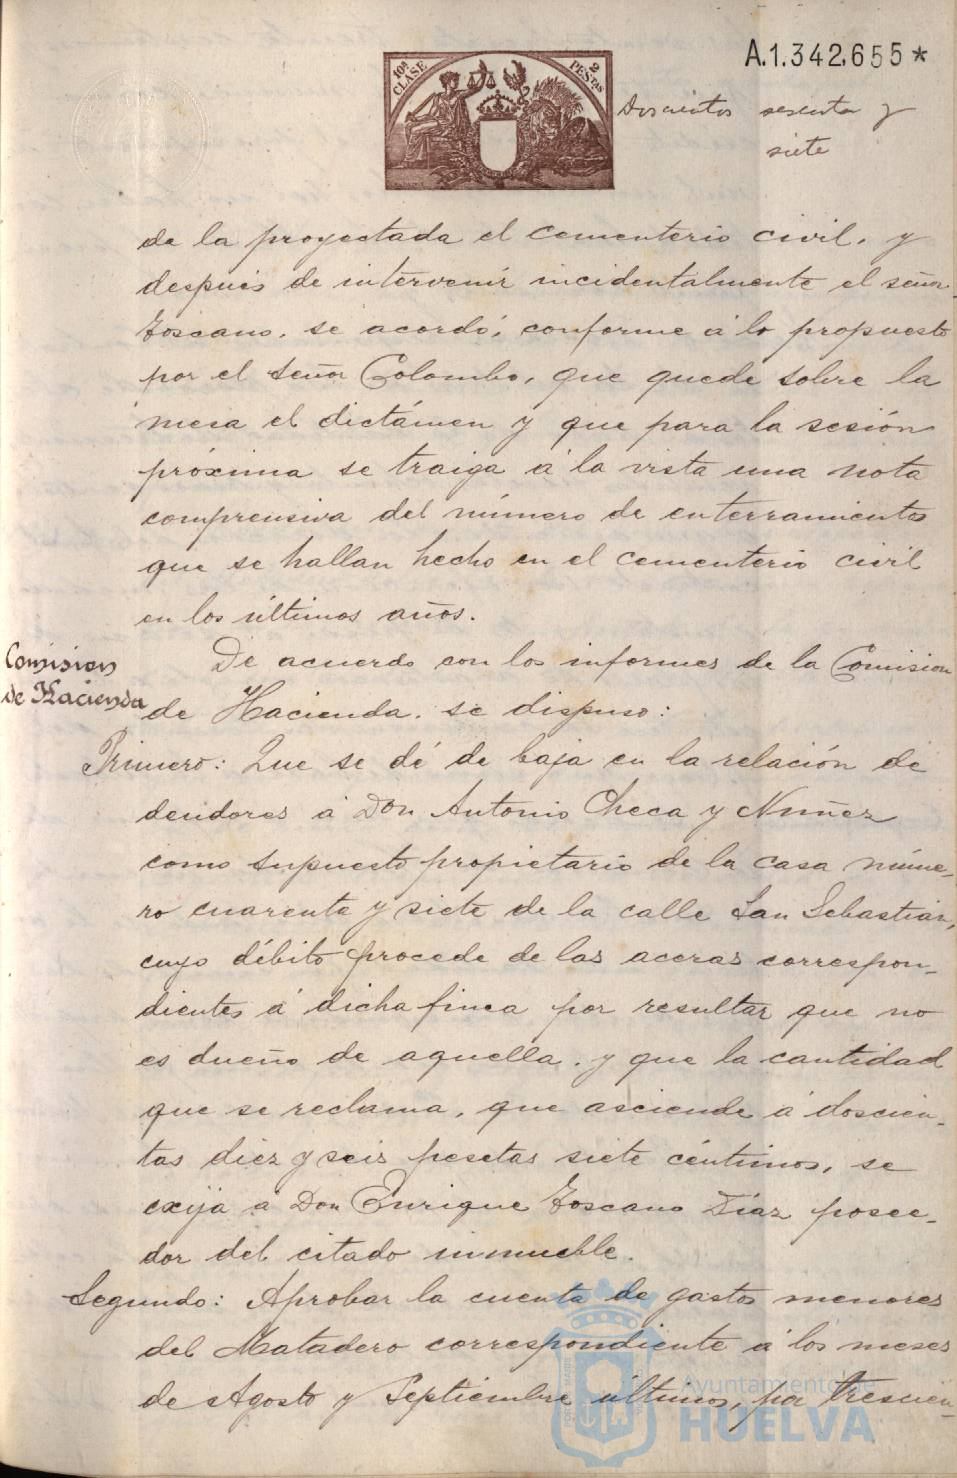 A.1.342.655*
10ª CLASE
2 PESTAS
Doscientos sesenta y
siete
de la proyectada el cementerio civil, y
después de intervenir incidentalmente el señor
Toscano, se acordó, conforme á lo propuesto
por el señor Colombo, que quede sobre la
mesa el dictámen y que para la sesión
próxima se traiga á la vista una nota
comprensiva del número de enterramientos
que se hallan hecho en el cementerio civil
en los últimos años.
Comision
de Hacienda
De acuerdo con los informes de la Comision
de Hacienda, se dispuso:
Primero: Que se dé de baja en la relación de
deudores á Don Antonio Checa y Nuñez
como supuesto propietario de la casa núme-
ro cuarenta y siete de la calle San Sebastián,
cuyo débito procede de las aceras correspon-
dientes á dicha finca por resultar que no
es dueño de aquella, y que la cantidad
que se reclama, que asciende á doscien-
tas diez y seis pesetas siete céntimos, se
exija á Don Enrique Toscano Díaz posee-
dor del citado inmueble.
Segundo: Aprobar la cuenta de gastos menores
del Matadero correspondiente á los meses
de Agosto y Septiembre últimos, por trescien-
Ayuntamiento de
HUELVA